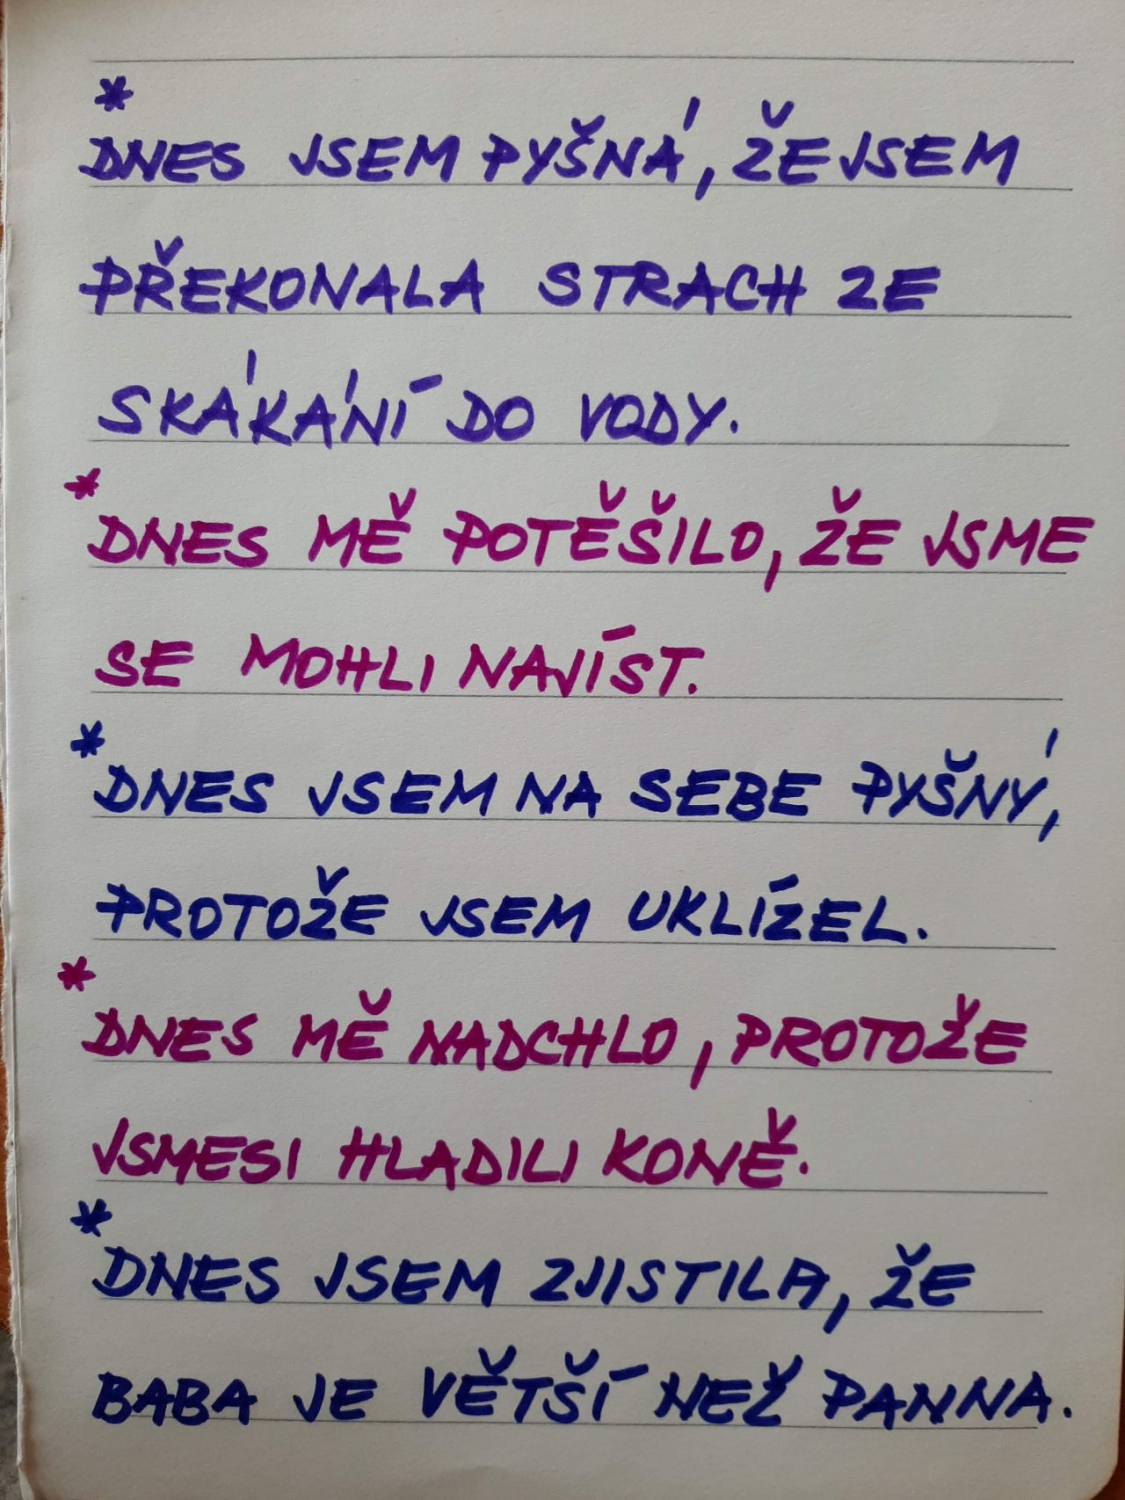 *
DNES JSEM PYŠNÁ, ŽE JSEM
PŘEKONALA STRACH ZE
SKÁKÁNÍ DO VODY.
*
DNES MĚ POTĚŠILO, ŽE JSME
SE MOHLI NAJÍST.
*
DNES JSEM NA SEBE PYŠNÝ,
PROTOŽE JSEM UKLÍZEL.
*
DNES MĚ NADCHLO, PROTOŽE
JSME SI HLADILI KONĚ.
*
DNES JSEM ZJISTILA, ŽE
BABA JE VĚTŠÍ NEŽ PANNA.